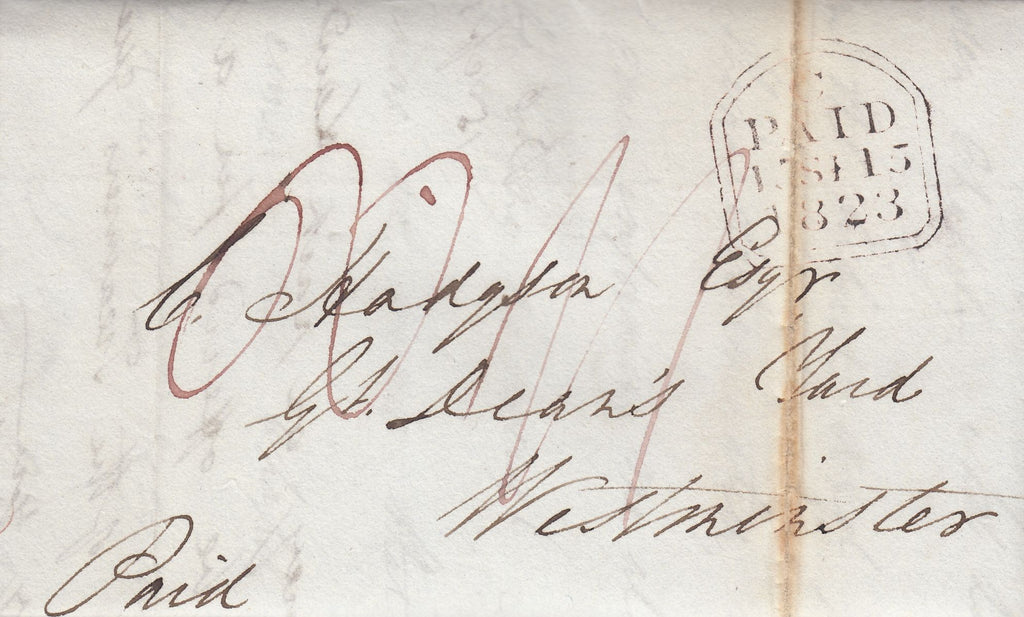 PAID
15 SE 15
1823
C. Hodgson Esqr
Gt. Dean's Yard
Westminster
Paid